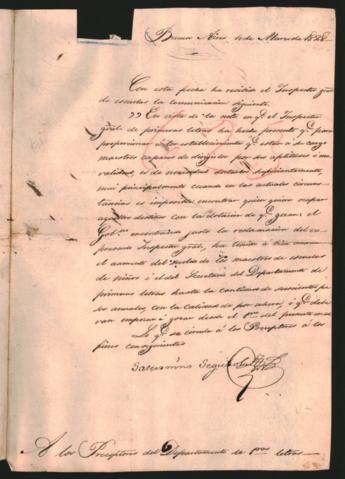 Buenos Aires 10 de Marzo de 1828
Con esta fecha ha recibido el Inspector gral
de escuelas la comunicacion siguiente
"En vista de la nota en q.e el Inspector
gral. de primeras letras ha hecho presente q.e para
proporcionar a los establecimientos q.e estan a su cargo
maestros capaces de dirigirlos por sus aptitudes i mo-
ralidad, es de necesidad dotarlos suficientemente,
mui principalmente cuando en las actuales circuns-
tancias es imposible encontrar quien quiera ocupar
aquellos destinos con la dotacion de q.e gozan: el
Gob.no encontrando justa la reclamacion del ex-
presado Inspector gral, ha tenido a bien
el aumento del sueldo de los maestros de escuelas
de niños i el del Secretario del Departamento de
primeras letras hasta la cantidad de seiscientos pe-
sos anuales, con la calidad de por ahora, i q.e debe-
ran empezar á gozar desde el 1.ro del presente
Lo q.e se circula á los Preceptores á los
fines consiguientes
Saturnino Segurola
A los Preceptores del Departamento de pras letras